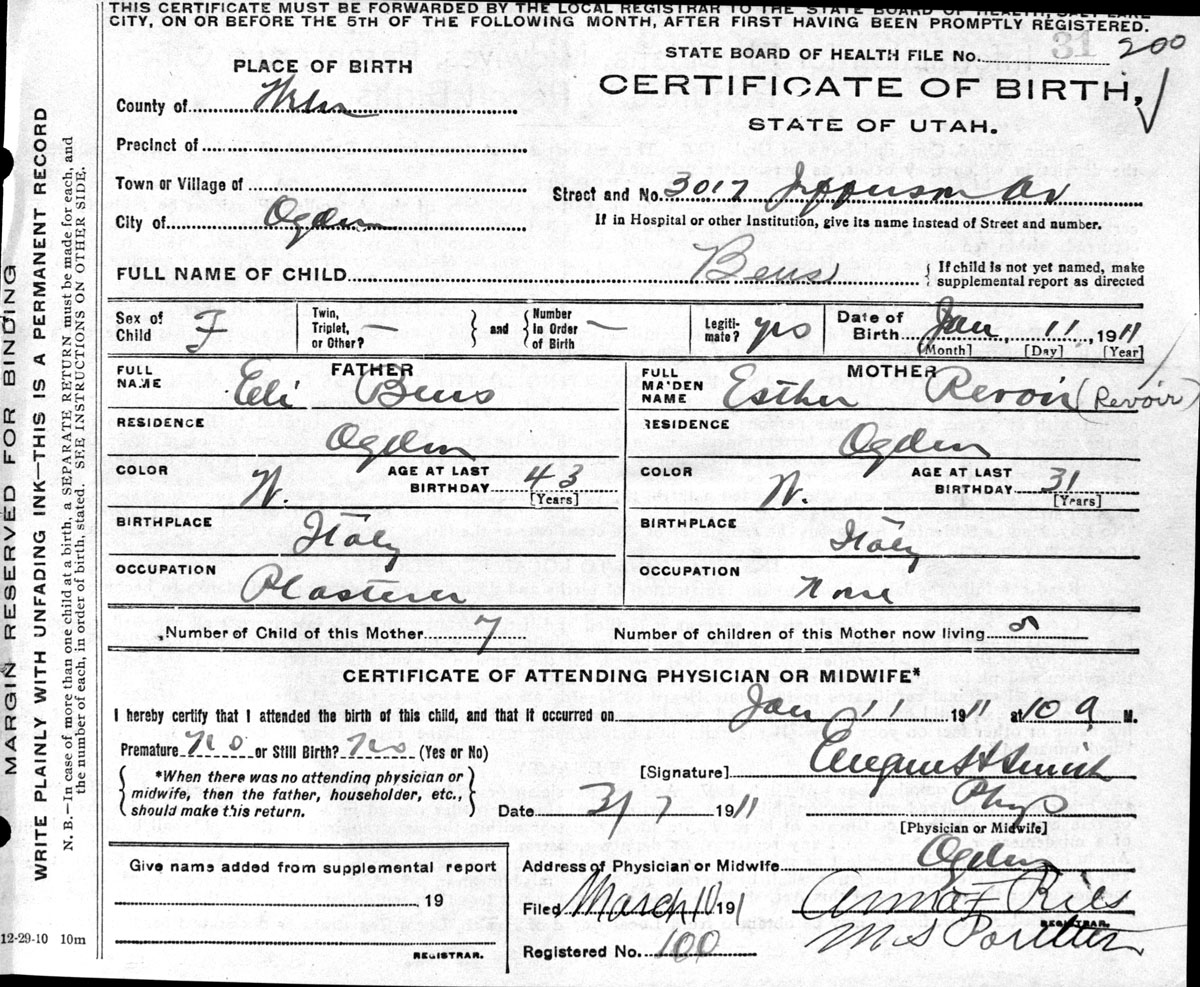 THIS CERTIFICATE MUST BE FORWARDED BY THE LOCAL REGISTRAR TO THE STATE BOARD OF HEALTH, SALT LAKE
CITY, ON OR BEFORE THE 5TH OF THE FOLLOWING MONTH, AFTER FIRST HAVING BEEN PROMPTLY REGISTERED.
STATE BOARD OF HEALTH FILE No. 31 200
PLACE OF BIRTH
CERTIFICATE OF BIRTH,
STATE OF UTAH.
County of
Precinct of
Town or Village of
Street and No. 3017 Jefferson Av
City of Ogden
If in Hospital or other Institution, give its name instead of Street and number.
FULL NAME OF CHILD Beus
If child is not yet named, make
supplemental report as directed
Sex of Child F
Twin, Triplet, or Other? —
and
Number In Order of Birth —
Legiti-mate? yes
Date of Birth Jan 11, 1911
[Month] [Day] [Year]
FATHER
FULL NAME Eli Beus
MOTHER
FULL MAIDEN NAME Esther Revoir (Revoir)
RESIDENCE Ogden
RESIDENCE Ogden
COLOR W. AGE AT LAST BIRTHDAY 43 [Years]
COLOR W. AGE AT LAST BIRTHDAY 31 [Years]
BIRTHPLACE Italy
BIRTHPLACE Italy
OCCUPATION Plasterer
OCCUPATION None
Number of Child of this Mother 7
Number of children of this Mother now living
CERTIFICATE OF ATTENDING PHYSICIAN OR MIDWIFE*
I hereby certify that I attended the birth of this child, and that it occurred on Jan 11 1911 at 10 a M.
Premature No or Still Birth? No (Yes or No)
*When there was no attending physician or
midwife, then the father, householder, etc.,
should make this return.
[Signature]
Date 3/7 1911
Phys
[Physician or Midwife]
Give name added from supplemental report
19
REGISTRAR.
Address of Physician or Midwife Ogden
Filed March 10 191
REGISTRAR.
Registered No. 100
12-29-10 10m
MARGIN RESERVED FOR BINDING
WRITE PLAINLY WITH UNFADING INK—THIS IS A PERMANENT RECORD
N. B.—In case of more than one child at a birth, a SEPARATE RETURN must be made for each, and
the number of each, in order of birth, stated. SEE INSTRUCTIONS ON OTHER SIDE.